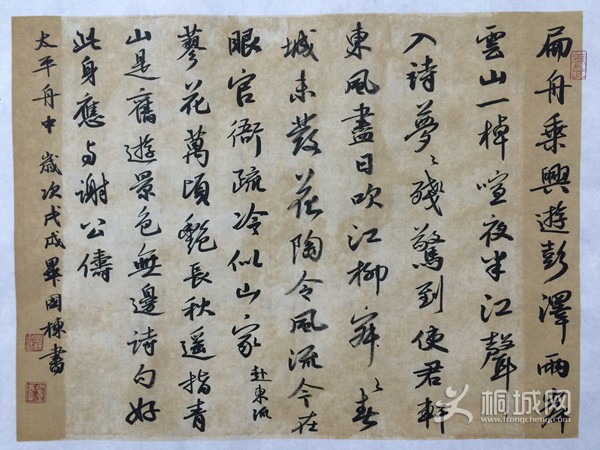 扁舟乘興遊彭澤兩岸
雲山一棹喧夜半江聲
入詩夢〻殘驚到使君軒
東風盡日吹江柳寂〻春
城未發花陶令風流今在
眼官衙疏冷似山家 赴東流
蓼花萬頃艷長秋遥指青
山是舊遊景色無邊詩句好
此身應与謝公儔
太平舟中 歲次戊戌畢国棟書
桐城网